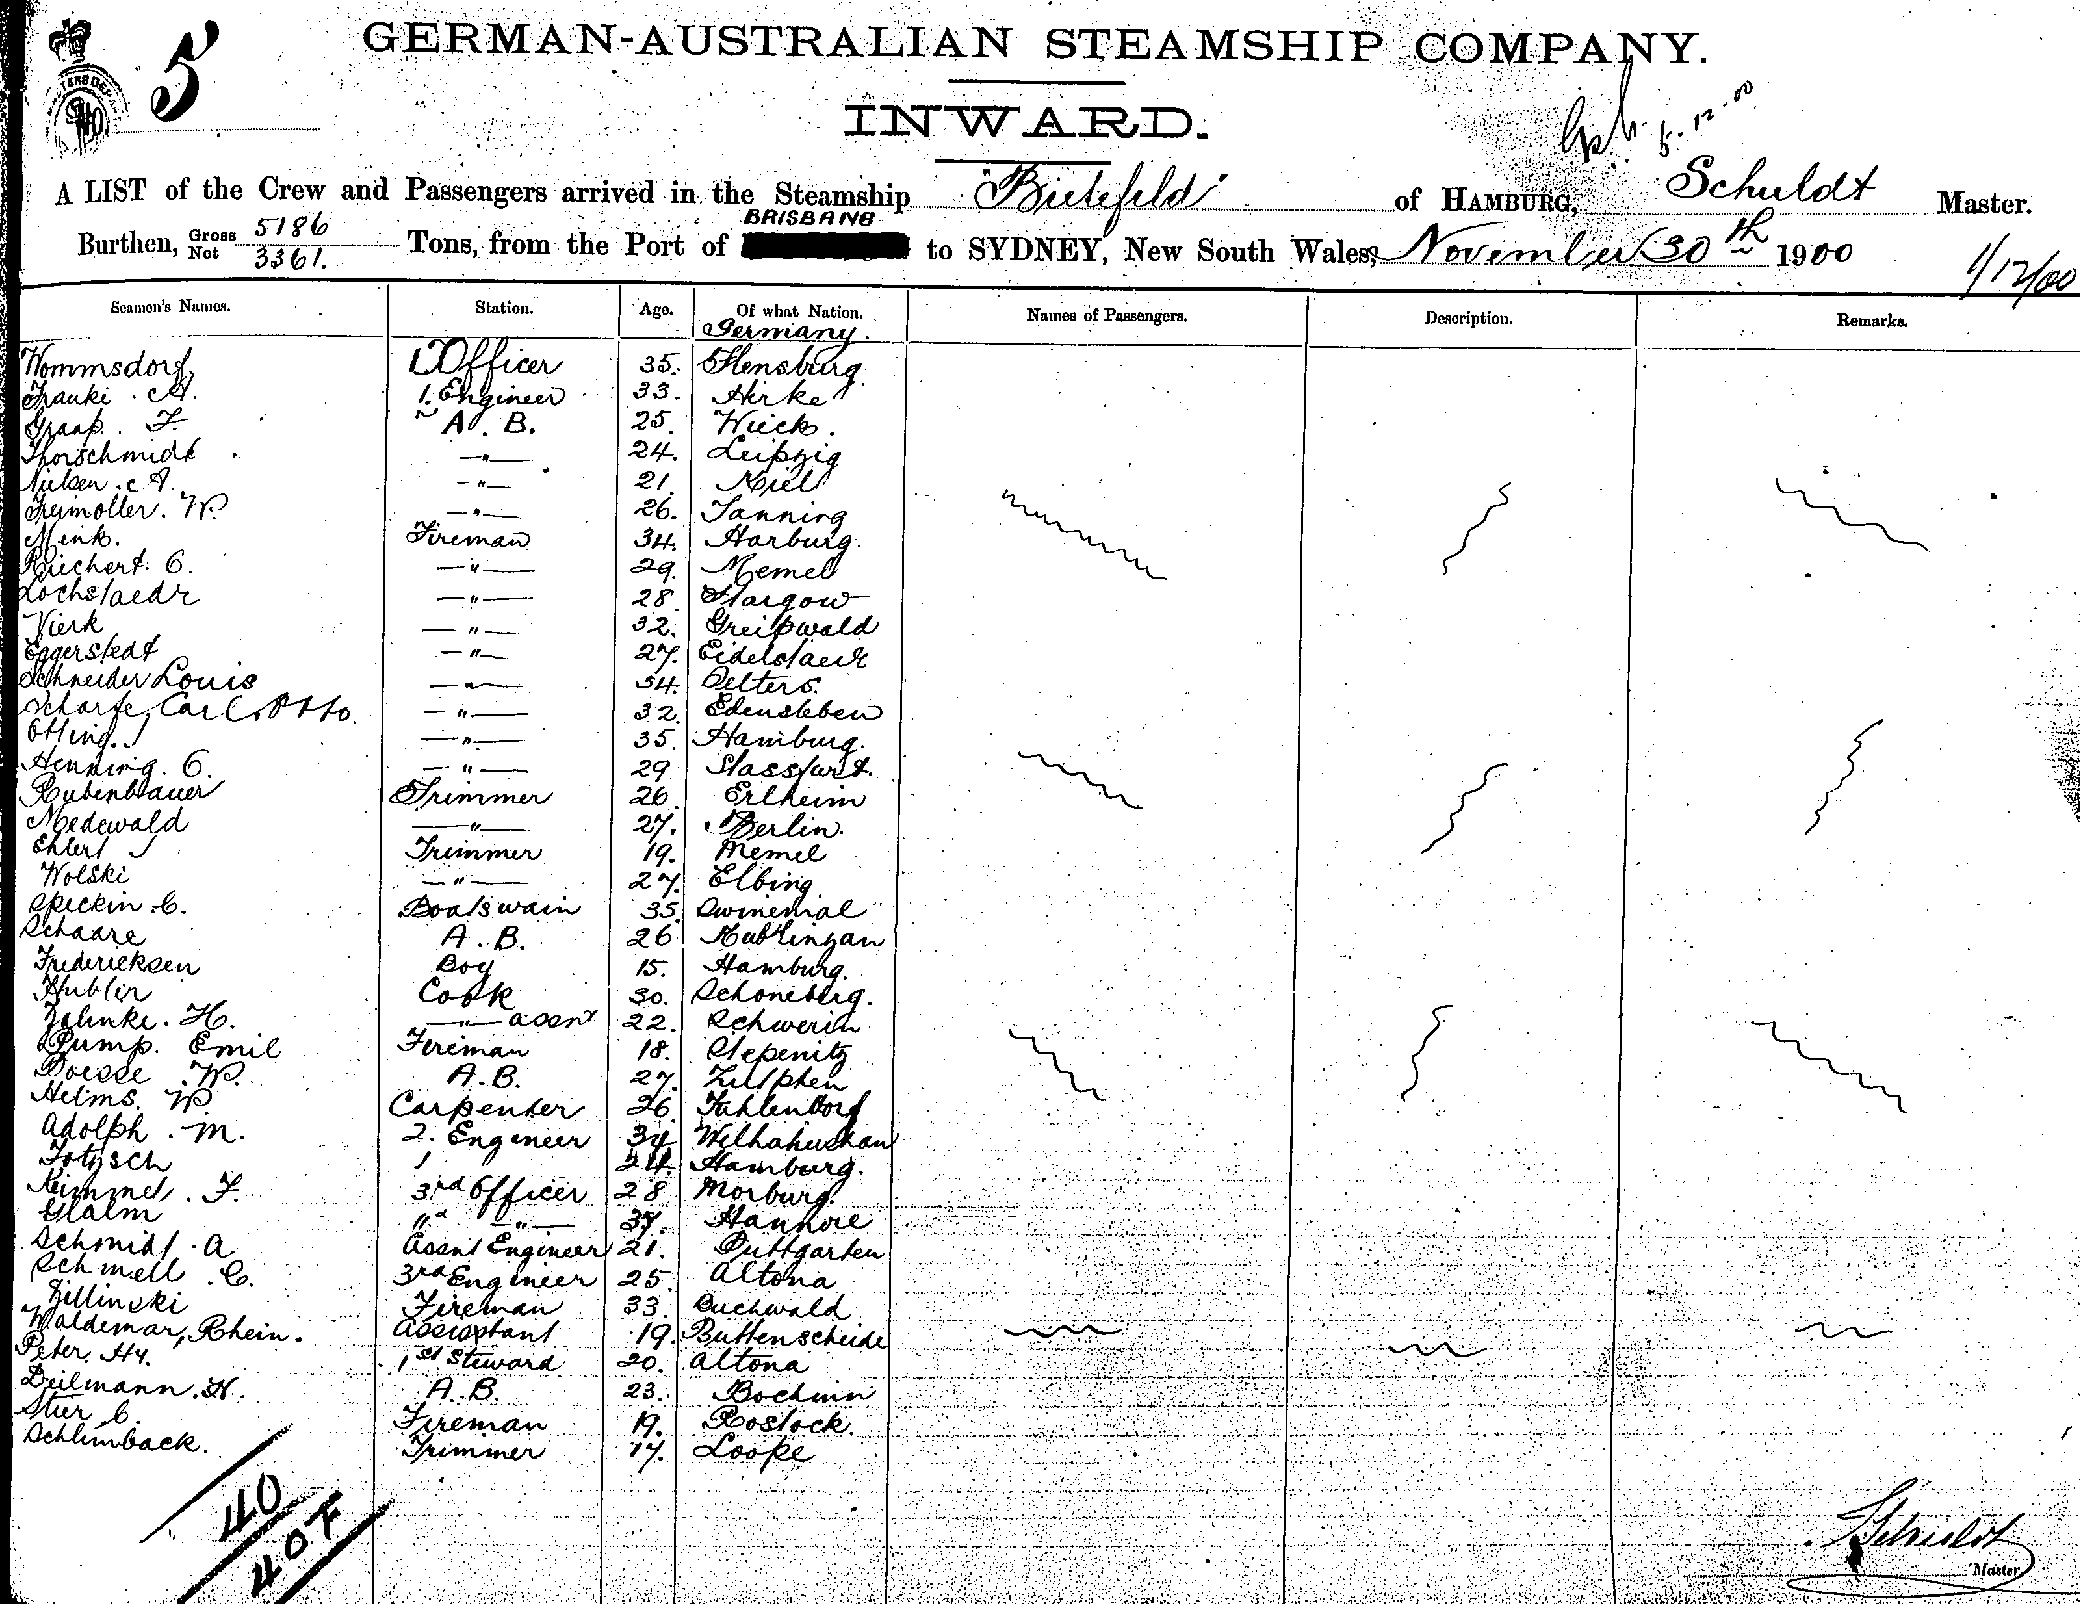 5
GERMAN-AUSTRALIAN STEAMSHIP COMPANY.
INWARD.
5.12.00
A LIST of the Crew and Passengers arrived in the Steamship "Bielefeld" of HAMBURG, Schuldt Master.
Burthen, Gross 5186 Net 3361. Tons, from the Port of BRISBANE to SYDNEY, New South Wales, November 30th 1900
1/12/00
Seamen's Names. Station. Age. Of what Nation. Names of Passengers. Description. Remarks.
Germany.
Wommsdorf, 1 Officer 35. Flensburg.
Franki. A. 1. Engineer 33. Hirke
Graap. F. A. B. 25. Wieck.
Thorschmidt —"— 24. Leipzig
Nielsen. A. —"— 21. Kiel
Freimoller. W. —"— 26. Tanning
Mink. Fireman 34. Harburg.
Riechert. C. —"— 29. Memel
Lochstaedt —"— 28. Stargow
Vierk —"— 32. Greifswald
Eggerstedt —"— 27. Eidelstaedt
Schneider Louis —"— 34. Selters.
Scharfe, Carl. Otto. —"— 32. Edensleben
Otting. J —"— 35. Hamburg.
Henning. C. —"— 29 Stassfurt.
Rubenbauer Trimmer 26 Erlheim
Medewald —"— 27. Berlin.
Ehlert J Trimmer 19. Memel
Wolski —"— 27. Elbing
Spickin. C. Boatswain 35. Swinemal
Schaare A. B. 26
Fredericksen Boy 15. Hamburg.
Hubler Cook 30. Schoneberg.
Zahnke. H. —"— assnt 22. Schwerin
Pump. Emil Fireman 18. Stepenitz
Boesse. W. A. B. 27. Zulphen
Helms. W Carpenter 26. Fahlendorf
Adolph. M. 2. Engineer 34
Totzsch 24. Hamburg.
Kummel. F. 3rd Officer 28 Morburg.
Glalm " —"— 37. Hannove
Schmidt. A Assnt Engineer 21. Puttgarten
Schmell. C. 3rd Engineer 25. Altona
Zillinski Fireman 33. Buchwald
Waldemar, Rhein. Assistant 19. Buttenscheide
Peter. Hy. 1st Steward 20. Altona
Deilmann. H. A. B. 23. Bochum
Stier C. Fireman 19. Rostock.
Schlimback. Trimmer 17. Loope
40
40 F
Schuldt
Master